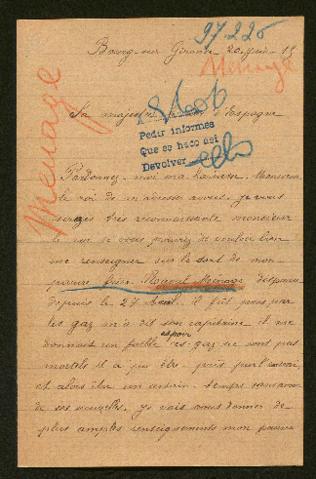 97.226
Bourg-sur Gironde 20 Juin 15
Menage
Menage
Sa majesté d'Espagne
Pedir informes
Que se haco del
Devolver
Pardonnez-moi ma hardiesse Monsieur
le roi de m'adresser à vous, je vous
serais très reconnaissante monsieur
le roi si vous pouviez de vouloir bien
me renseigner sur le sort de mon
pauvre frère Menage disparu
depuis le 27 Avril. il fut pris par
les gaz m'a dit son capitaine il me
espoir
donnait un faible ces gaz ne sont pas
mortels il a pu être pris par l'ennemi
et alors être un certain temps sans avoir
de ses nouvelles. je vais vous donner de
plus amples renseignements mon pauvre